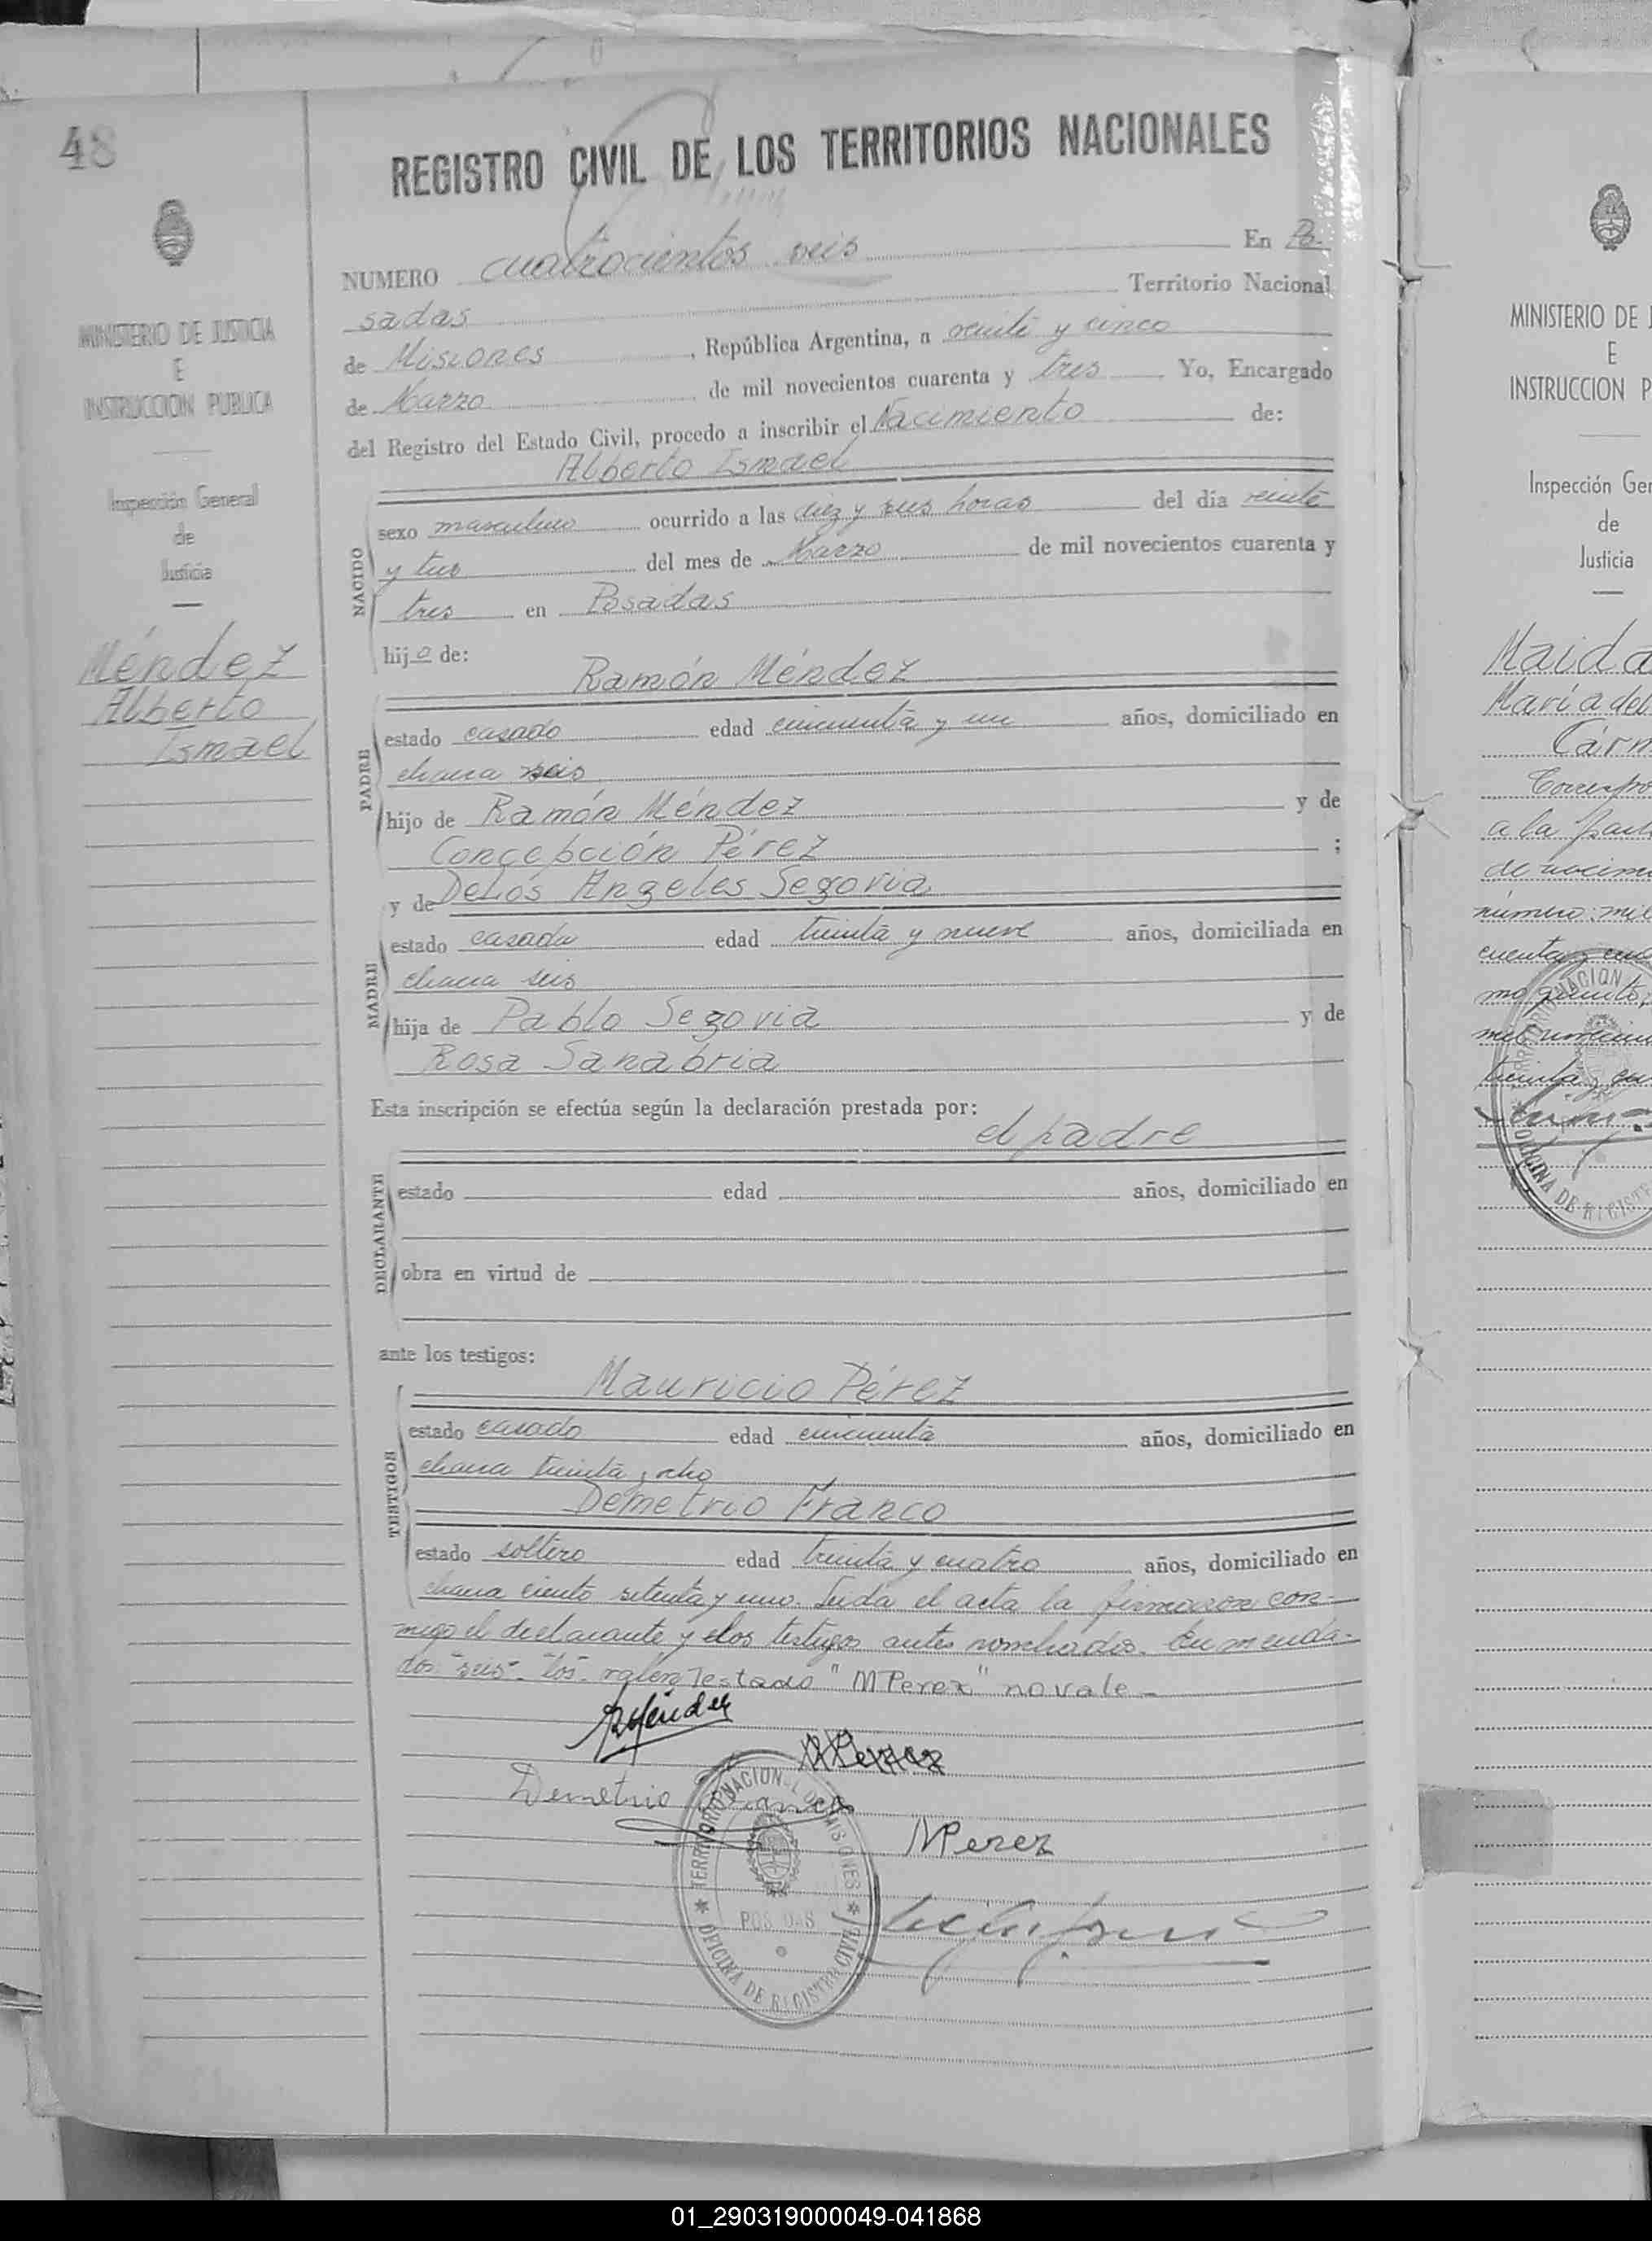 48
REGISTRO CIVIL DE LOS TERRITORIOS NACIONALES
NUMERO cuatrocientos seis En Po-
sadas Territorio Nacional
de Misiones, República Argentina, a veinte y cinco
de Marzo de mil novecientos cuarenta y tres Yo, Encargado
del Registro del Estado Civil, procedo a inscribir el Nacimiento de:
Alberto Ismael
NACIDO
sexo masculino ocurrido a las diez y seis horas del día veinte
y tres del mes de Marzo de mil novecientos cuarenta y
tres en Posadas
hijo de:
Ramón Méndez
PADRE
estado casado edad cincuenta y un años, domiciliado en
chacra seis
hijo de Ramón Méndez y de
Concepción Pérez ;
y de Delos Angeles Segovia
MADRE
estado casada edad treinta y nueve años, domiciliada en
chacra seis
hija de Pablo Segovia y de
Rosa Sanabria
Esta inscripción se efectúa según la declaración prestada por:
el padre
DECLARANTE
estado edad años, domiciliado en
obra en virtud de
ante los testigos:
Mauricio Pérez
TESTIGOS
estado casado edad cincuenta años, domiciliado en
chacra treinta y ocho
Demetrio Franco
estado soltero edad treinta y cuatro años, domiciliado en
chacra ciento setenta y uno. Leida el acta la firmaron con-
migo el declarante y los testigos antes nombrados. Enmenda-
dos "seis" "los" valen Testado "MPerez" no vale-
RMéndez
MPerez
Demetrio Franco
MPerez
TERRITORIO NACIONAL DE MISIONES
POSADAS
OFICINA DE REGISTRO CIVIL
MINISTERIO DE JUSTICIA
E
INSTRUCCION PUBLICA
Inspección General
de
Justicia
Méndez
Alberto
Ismael
MINISTERIO DE J
E
INSTRUCCION P
Inspección Gen
de
Justicia
Maida
María del
Cárm
Correspo
a la part
de nacim
número mil
cuenta y
mo quinto,
mil novecien
treinta y
OFICINA DE REGISTR
01_290319000049-041868